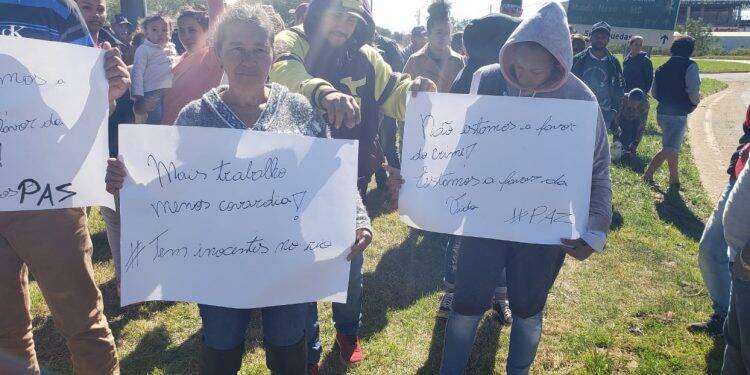 mos a
favor da
PAS
Mais trabalho
menos covardia!
#Tem inocentes no rio
Não estamos a favor
do crime!
Estamos a favor da
Vida
#PAZ